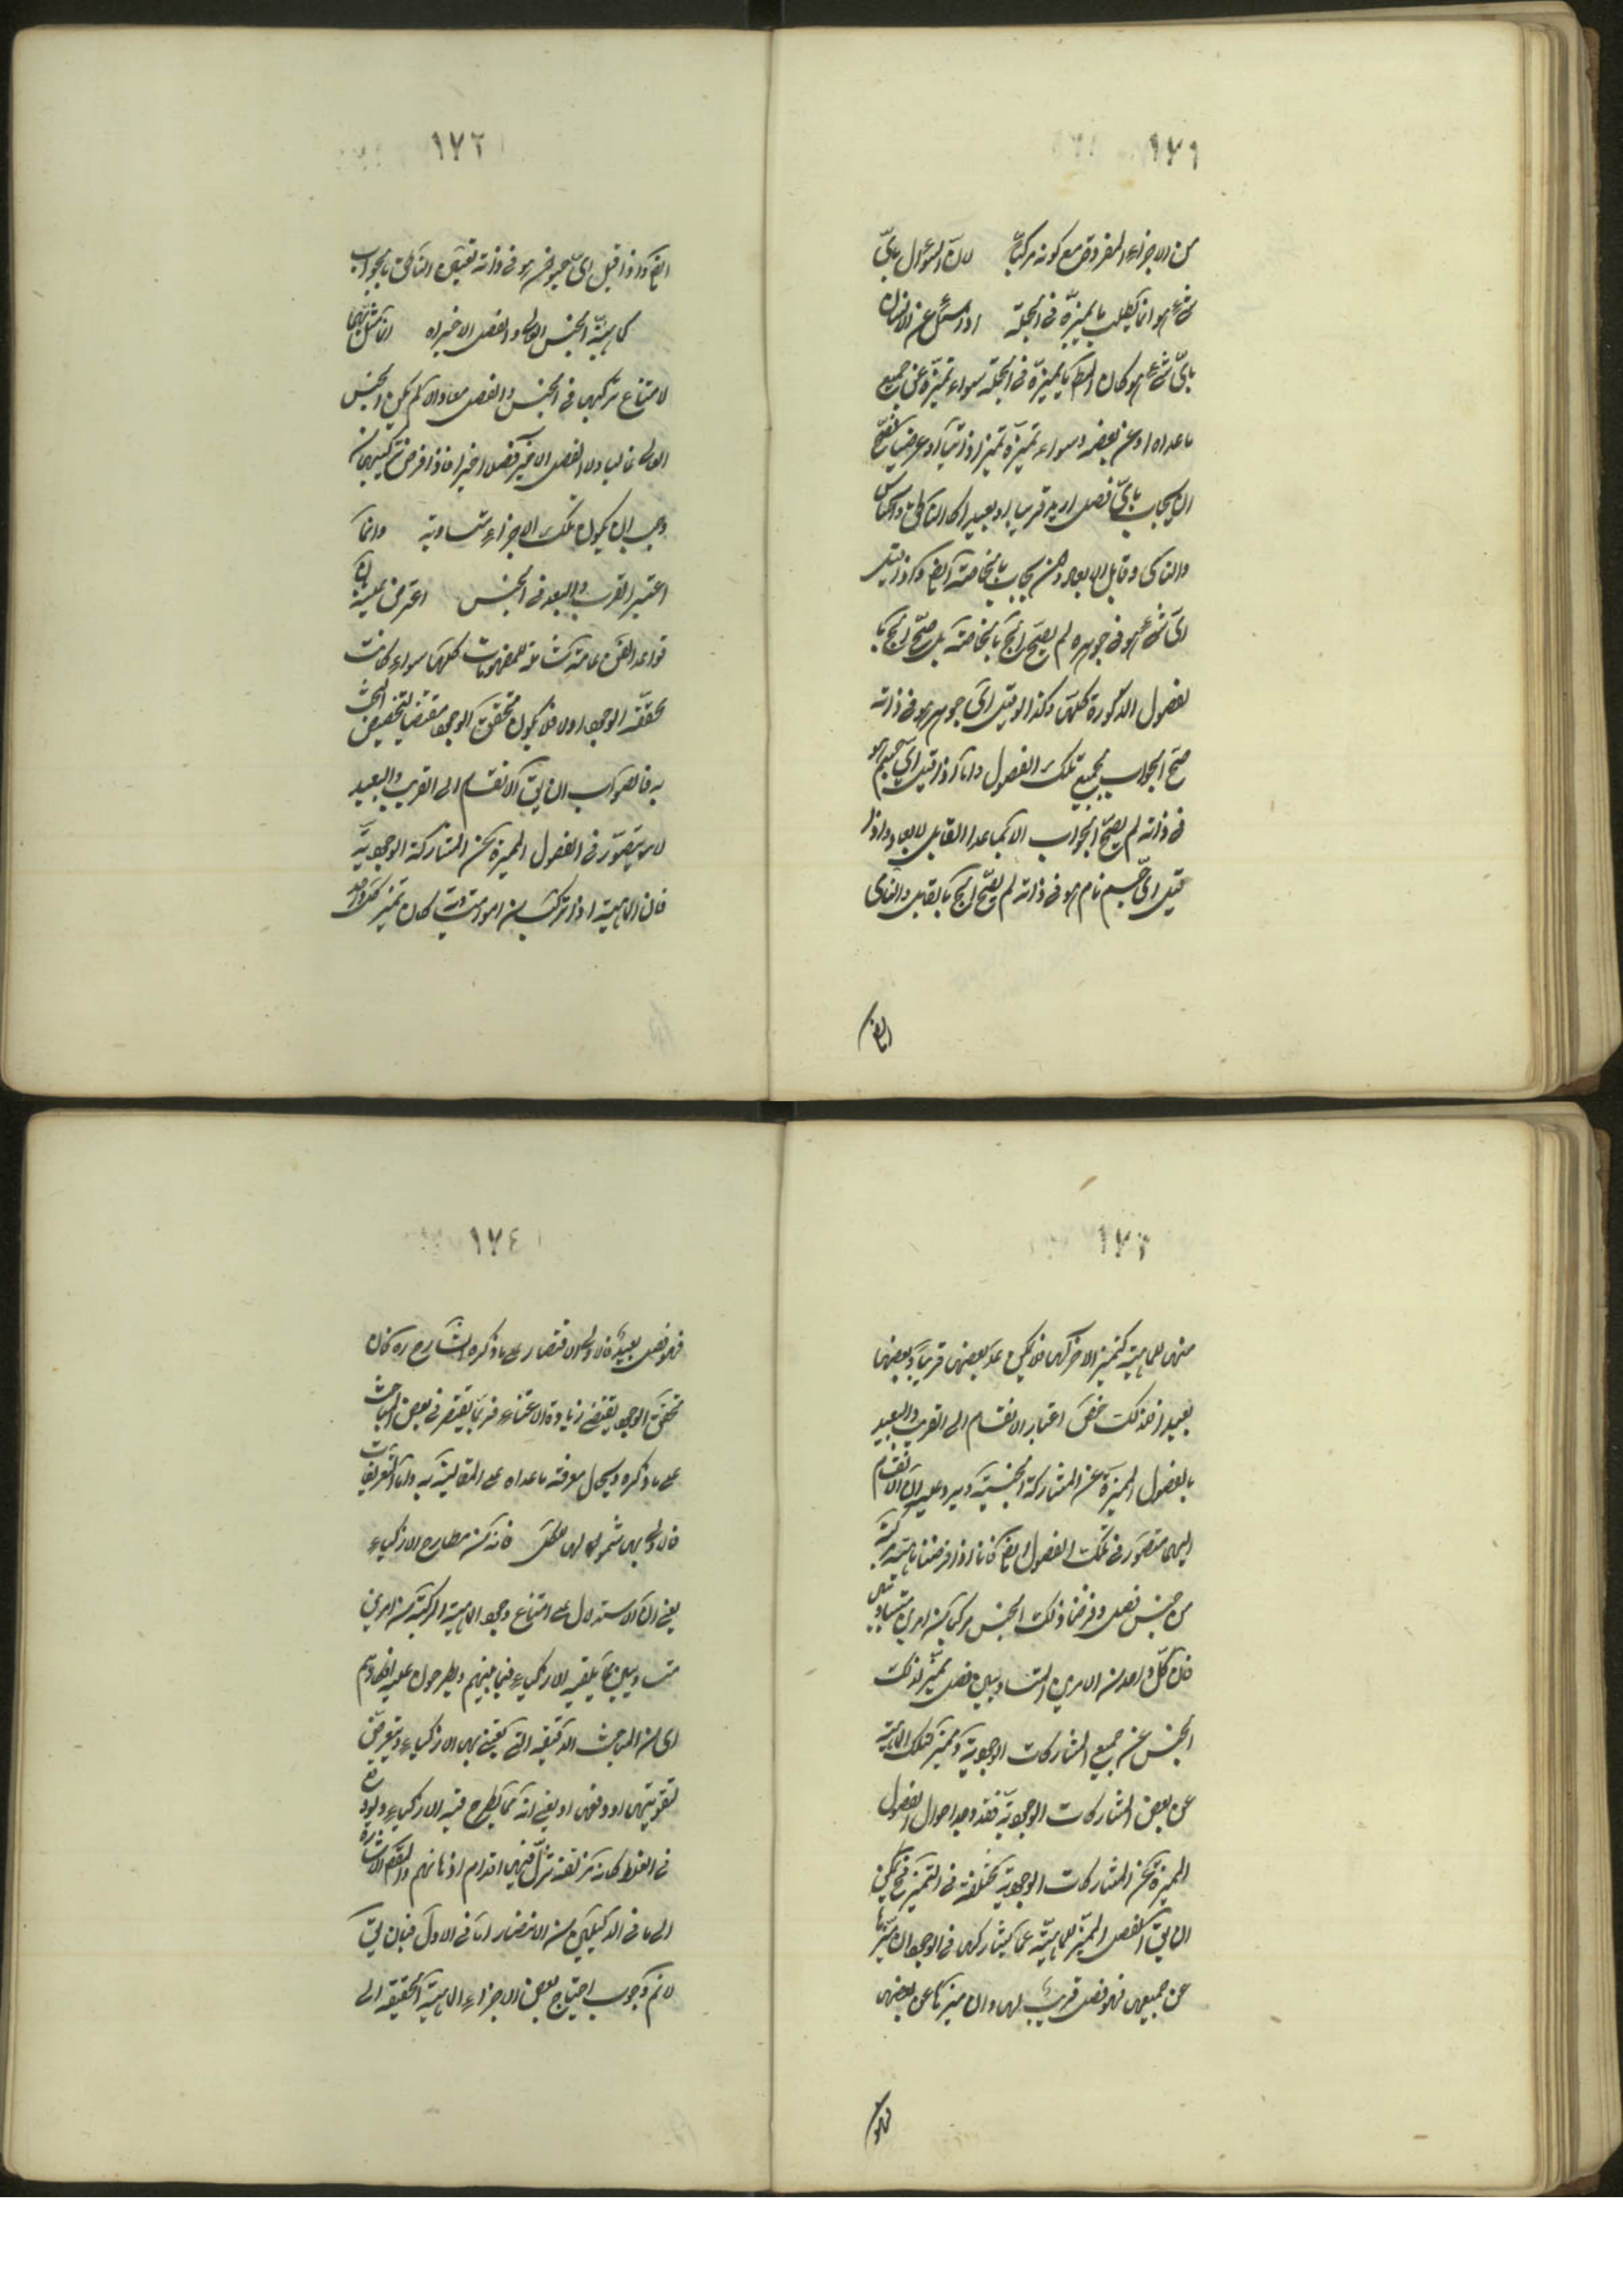 ١٧١
من الاجزاء المفروض مع كونه مركبا لان السؤال باىّ
شئ هو انما يطلب ما يميزه فى الجملة اذا سئل عن الانسان
باىّ شئ هو كان المط ما يميزه فى الجملة سواء تميزه عن جميع
ما عداه او عن بعضه وسواء تميزه تميزا ذاتيا او عرضيا فيصح
ان يجاب باىّ فصل اريد قريبا او بعيدا كالناطق والحساس
والنامى وقابل الابعاد وان يجاب بالخاصة ايض وكذا اذا قيل
اىّ شئ هو فى جوهره لم يصح الج بالخاصة بل صح الج با
لفصول المذكورة كلها وكذا لو قيل اىّ جوهر هو فى ذاته
صح الجواب بجميع تلك الفصول واما اذا قيل اىّ جسم هو
فى ذاته لم يصح الجواب الا بما عدا القابل للابعاد واذا
قيل اىّ جسم نام هو فى ذاته لم يصح الج بالقابل والنامى
ايض
١٧٢
ايض واذا قيل اىّ حيوان هو فى ذاته تعين الناطق بالجواب
كماهية الجنس العالى والفصل الاخير اه انما مثل بهما
لامتناع تركبهما فى الجنس والفصل معا والا لم يكن الجنس
العالى عاليا ولا الفصل الاخير فصلا اخيرا فاذا فرض تركيبهما
وجب ان يكون تلك الاجزاء متساوية وانما
اعتبر القرب والبعد فى الجنس اعترض عليه بان
قواعد الفن عامة شاملة للمفهومات كلها سواء كانت
محققة الوجود او لا فلا يكون تحقق الوجود مقتضيا لتخصيص البحث
به فالصواب ان يق الانقسام الى القريب والبعيد
لا يتصور فى الفصول المميزة عن المشاركة الوجودية
فان الماهية اذا تركبت من امور متساوية كان تميز كل واحد
١٧٣
منها للماهية كتميز الاخر لها فلا يمكن عد بعضها قريبا وبعضها
بعيدا فلذلك خص اعتبار الانقسام الى القريب والبعيد
بالفصول المميزة عن المشاركة الجنسية ويرد عليه ان الانقسام
اليهما متصور فى تلك الفصول ايض فانا اذا فرضنا ماهية مركبة
من جنس وفصل وفرضنا ذلك الجنس مركبا من امرين متساويين
فان كل واحد من الامرين المتساويين فصل مميز لذلك
الجنس عن جميع المشاركات الوجودية ومميز لتلك الماهية
عن بعض المشاركات الوجودية فقد وجد احوال الفصول
المميزة عن المشاركات الوجودية مختلفة فى التميز فح يمكن
ان يق الفصل المميز للماهية عما يشاركها فى الوجود ان ميزها
عن جميعها فهو فصل قريب لها وان ميزها عن بعضها
فهو
١٧٤
فهو فصل بعيد فالاولى الاقتصار على ما ذكره الشارح ره فان
تحقق الوجود يقتضى زيادة الاعتناء فربما يقتصر فى بعض المباحث
على ما ذكره ويحال معرفة ما عداه على المقايسة به واما التعريفات
فالاولى بها شمولها لها مطلق فانه من مطارح الاذكياء
يعنى ان الاستدلال على امتناع وجود الماهية المركبة من امرين
متساويين مما يلقيه الاذكياء فيما بينهم ويطرحون عليه افكارهم
اى من المباحث الدقيقة التى يعتنى بها الاذكياء ويتعرض
لتقويتها او دفعها او يعنى انه مما يطرح فيه الاذكياء ويوقع
فى الغلط كانه مزلقة تزل فيها اقدام اذهانهم والتقم الاشارة
الى ما فى الدليلين من الانظار اما فى الاول فبان يق
لا نم وجوب احتياج بعض الاجزاء الماهية الحقيقة الى